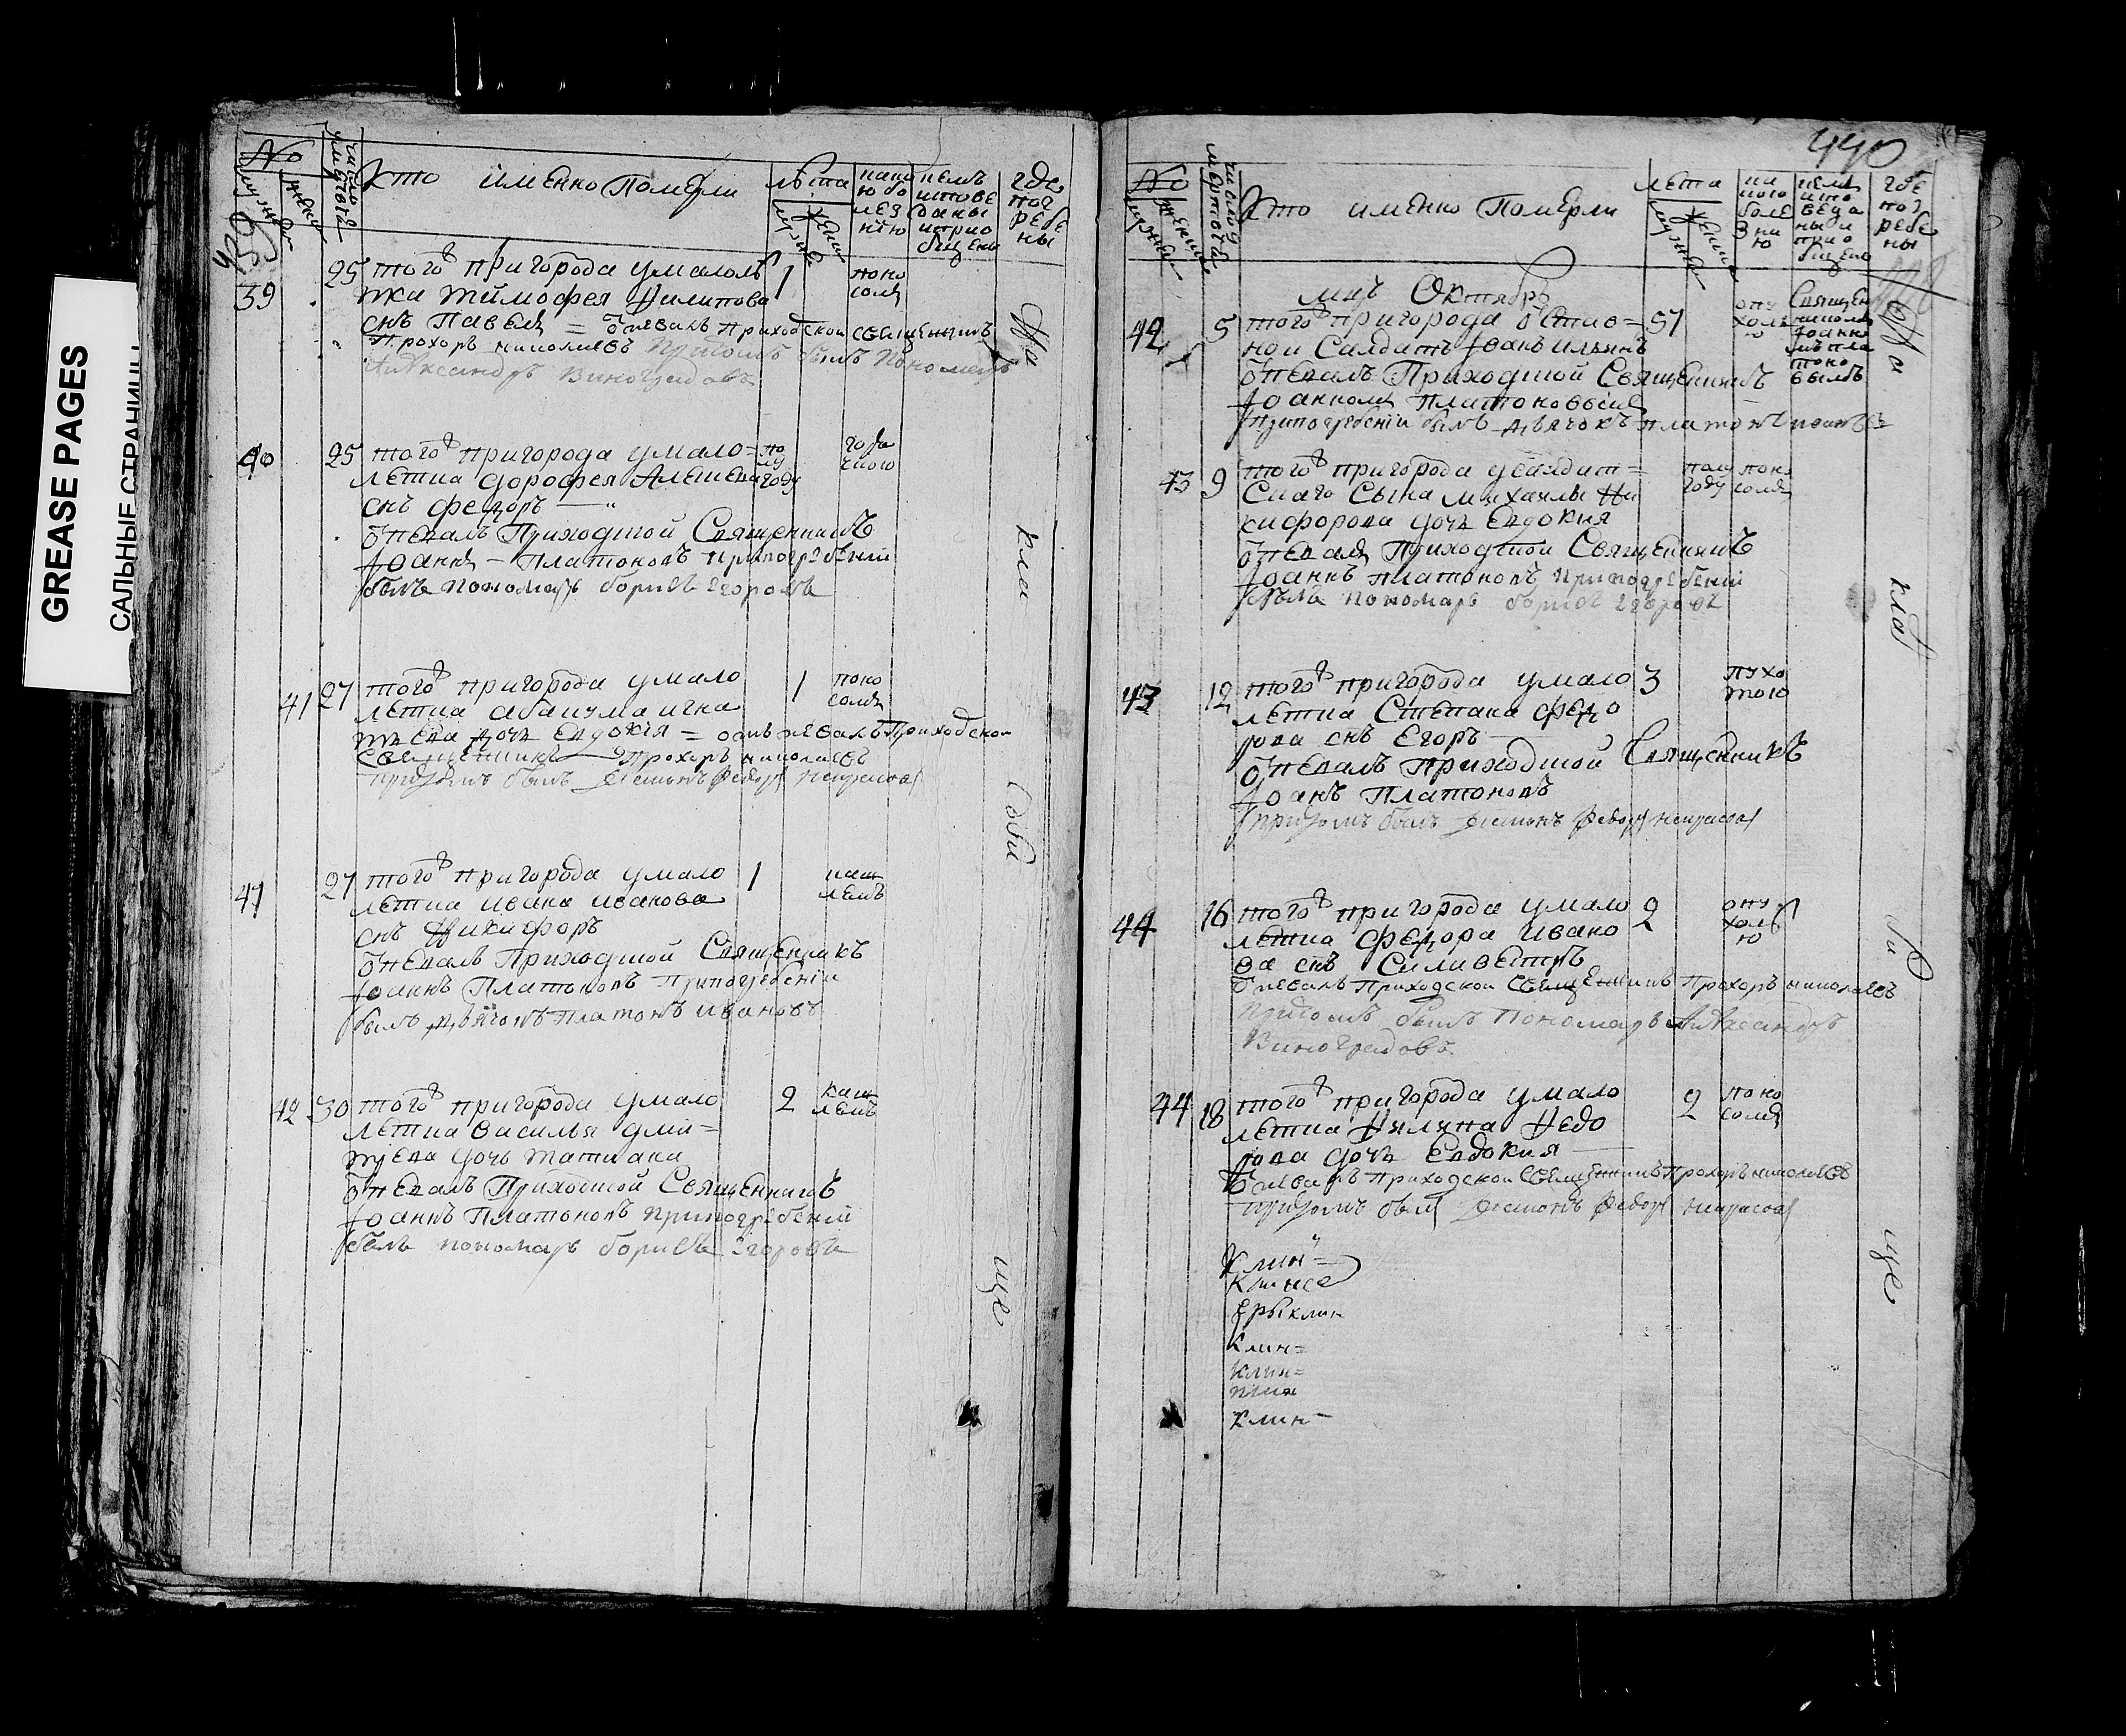 GREASE PAGES
САЛЬНЫЕ СТРАНИЦЫ
No
Кто именно Померли
лѣта
где
пог
ребе
ны
39
25
того пригорода умалолѣ
тка тимофея Филипова
снъ Павелъ = отпевалъ приходской священникъ
Прохоръ николаевъ Притомъ былъ Пономарь
Александръ Виноградовъ
1
поно
сомъ
40
25
того пригорода умало=
летка дорофея Алексеева
снъ федоръ
отпевалъ Приходской Священникъ
Іоаннъ Платоновъ припогребеніи
былъ пономарь борисъ егоровъ
по
лу
году
41
27
того пригорода умало
летка
дочь Евдокія = отпевалъ Приходской
священникъ Прохоръ николаевъ
притомъ былъ дьячокъ Федоръ некрасовъ
1
поно
сомъ
41
27
того пригорода умало
летка ивана иванова
снъ Никифоръ
отпевалъ Приходской Священникъ
Іоаннъ Платоновъ Припогребеніи
былъ дьячокъ Платонъ ивановъ
1
каш
лемъ
42
30
того пригорода умало
летка василья дми=
треева дочь татиана
отпевалъ Приходской Священникъ
Іоаннъ Платоновъ припогребеніи
былъ пономарь борисъ Егоровъ
2
каш
лемъ
На
кла
дби
ще
440
No
Кто именно Померли
лета
где
пог
ребе
ны
мцъ Октябрь
42
5
того пригорода отстав=
ной Салдатъ Іванъ ильинъ
отпевалъ Приходской Священникъ
Іоанномъ Платоновымъ
припогребеніи былъ дьячокъ платонъ ивановъ
57
опу
холь
ю
Священ
никомъ
Іоанно
мъ пла
тоно
вымъ
43
9
того пригорода усалдат=
скаго сына михаилы Ни
кифорова дочь Евдокия
отпевалъ Приходской Священникъ
Іоаннъ платоновъ припогребеніи
былъ пономарь борисъ егоровъ
пол
году
поно
сомъ
43
12
того пригорода умало
летка Степана федо
рова снъ Егоръ
отпевалъ приходской Священникъ
Іоанъ Платоновъ
притомъ былъ дьячокъ Федоръ некрасовъ
3
44
16
того пригорода умало
летка федора ивано
ва снъ Силивестръ
отпевалъ Приходской Священникъ Прохоръ николаевъ
Притомъ былъ Пономарь Александръ
Виноградовъ
2
опу
холь
ю
44
18
того пригорода умало
летка Федо
рова дочь Евдокия
отпевалъ приходской священникъ Прохоръ николаевъ
притомъ былъ дьячокъ Федоръ некрасовъ
2
поно
сомъ
На
кла
дби
ще
Клин=
Клин=
Клин=
Клин=